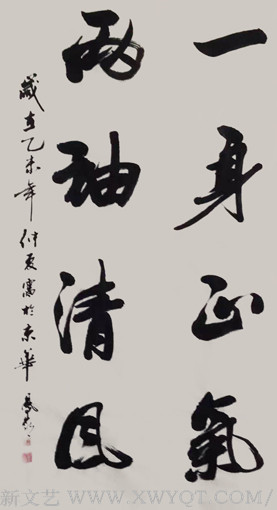 一身正氣
兩袖清风
歲在乙未年仲夏寫於京華
新文艺 WWW.XWYQT.COM/